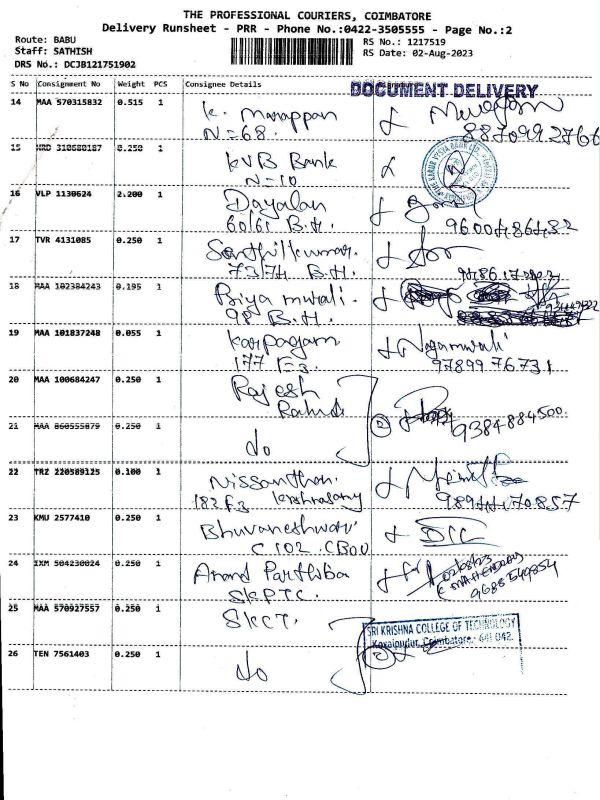 THE PROFESSIONAL COURIERS, COIMBATORE
Delivery Runsheet - PRR - Phone No.:0422-3505555 - Page No.:2
Route: BABU
Staff: SATHISH
DRS No.: DCJB121751902
RS No.: 1217519
RS Date: 02-Aug-2023
S No Consignment No Weight PCS Consignee Details
DOCUMENT DELIVERY
14 MAA 570315832 0.515 1 K. Marappan
N=68. 8870992766
15 HRD 310680187 0.250 1 KVB Bank
N=10
16 VLP 1130624 2.200 1 Dayalan
60/61 B.H. 9600486432
17 TVR 4131085 0.250 1 Senthilkumar.
73/74 B.H.
18 MAA 102384243 0.195 1 Priya
98 B.H.
19 MAA 101837248 0.055 1 Karpagam Nagamurali
177 F3 9789976731
20 MAA 100684247 0.250 1 Rajesh
9384884500.
21 MAA 860555879 0.250 1 do
22 TRZ 220589125 0.100 1 Nissanthan.
182 F3 Krishnasamy
23 KMU 2577410 0.250 1 Bhuvaneshwari
C102. CBOU
24 IXM 504230024 0.250 1 Anand Parthiba
SKPTC. 9688549854
25 MAA 570927557 0.250 1 SKCT.
SRI KRISHNA COLLEGE OF TECHNOLOGY
Kovaipudur, Coimbatore - 641 042.
26 TEN 7561403 0.250 1 do